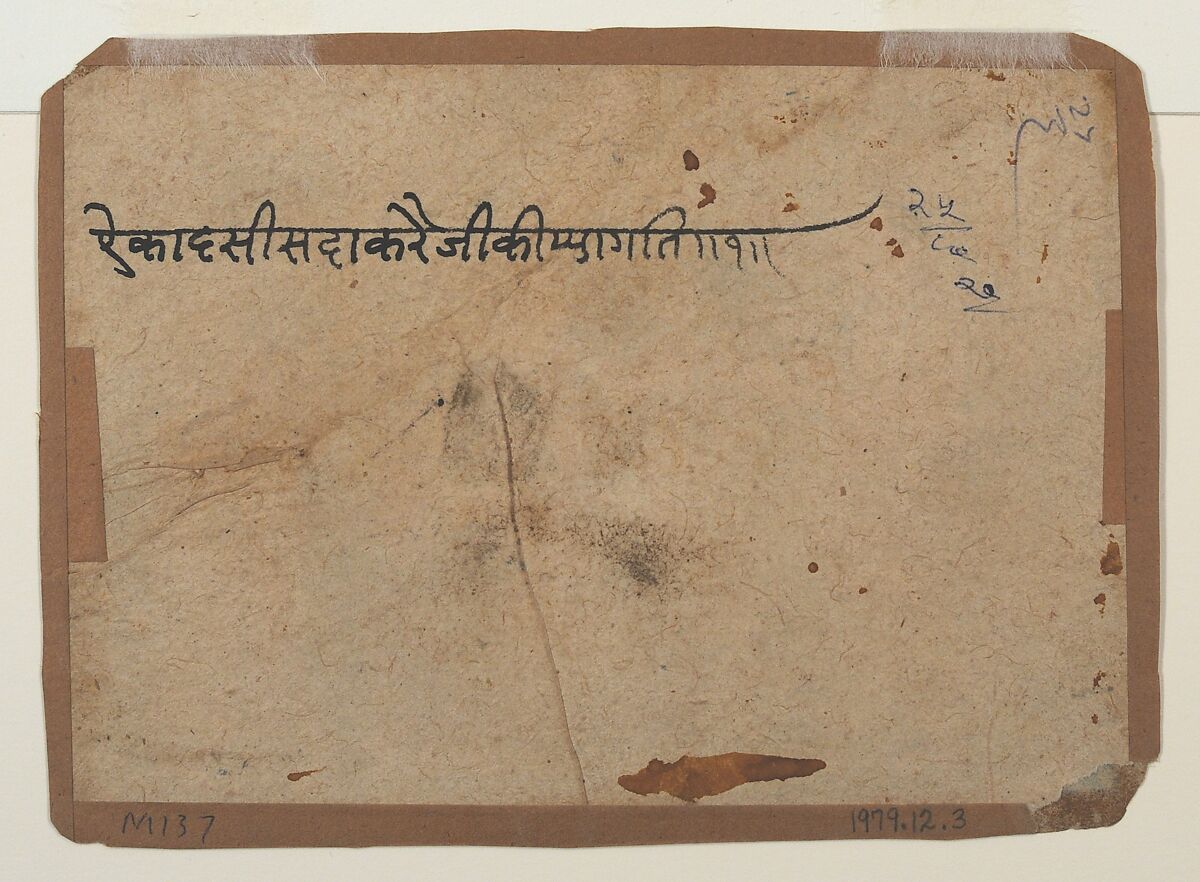 ऐकादसीसदाकरैजीकीप्यागति॥१॥
२५
२७
M137
1979.12.3